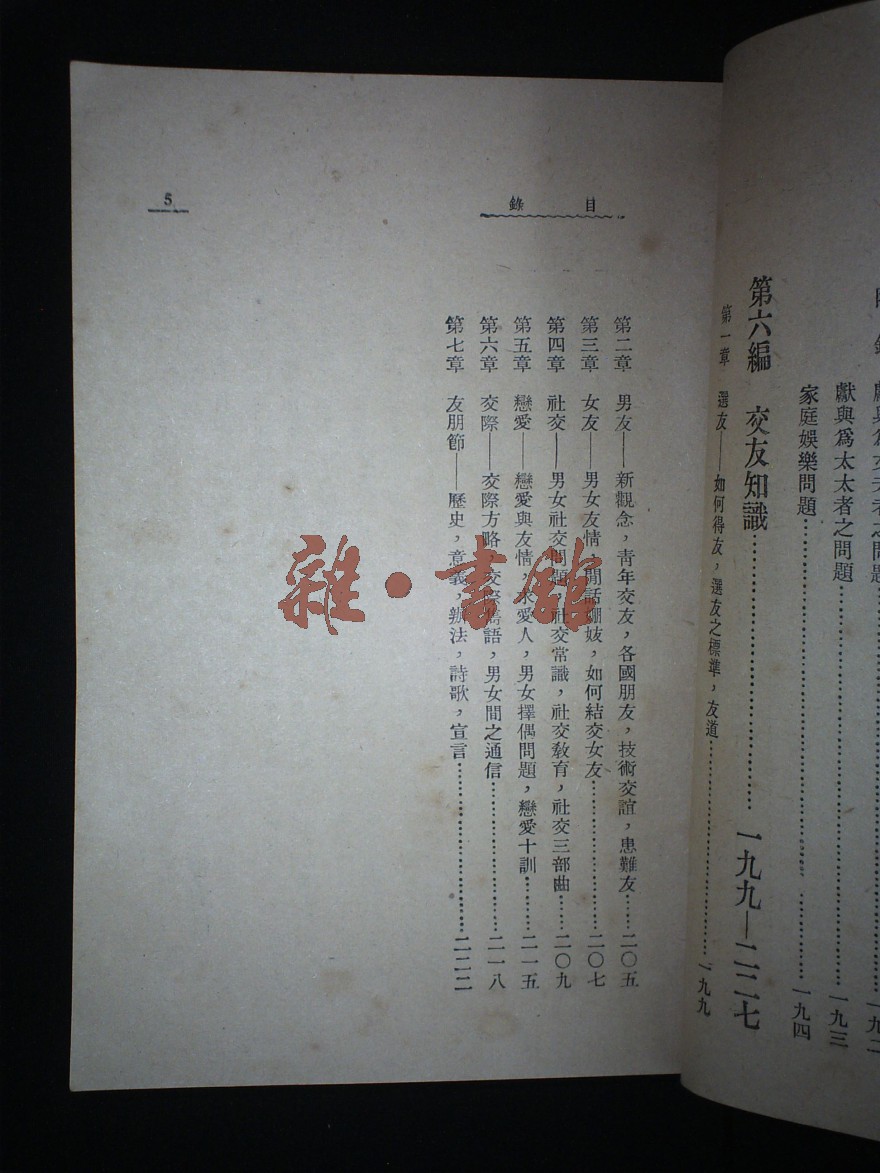 獻與爲太太者之問題……一九三
家庭娛樂問題……一九四
第六編 交友知識……一九九—二二七
第一章 選友——如何得友,選友之標準,友道……一九九
目錄
5
第二章 男友——新觀念,青年交友,各國朋友,技術交誼,患難友……二〇五
第三章 女友——男女友情,閒話妓,如何結交女友……二〇七
第四章 社交——男女社交問題,社交常識,社交教育,社交三部曲……二〇九
第五章 戀愛——戀愛與友情,求愛人,男女擇偶問題,戀愛十訓……二一五
第六章 交際——交際方略,交際語,男女間之通信……二一八
第七章 友朋節——歷史,意義,辦法,詩歌,宣言……二二二
雜·書館